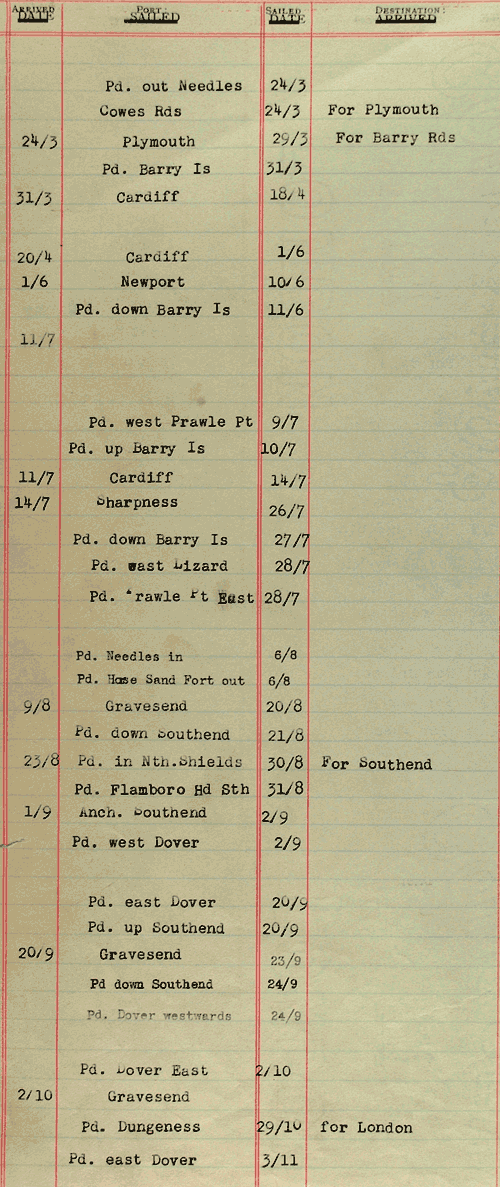 ARRIVED DATE PORT SAILED SAILED DATE DESTINATION: ARRIVED
Pd. out Needles 24/3
Cowes Rds 24/3 For Plymouth
24/3 Plymouth 29/3 For Barry Rds
Pd. Barry Is 31/3
31/3 Cardiff 18/4
20/4 Cardiff 1/6
1/6 Newport 10/6
Pd. down Barry Is 11/6
11/7
Pd. west Prawle Pt 9/7
Pd. up Barry Is 10/7
11/7 Cardiff 14/7
14/7 Sharpness 26/7
Pd. down Barry Is 27/7
Pd. east Lizard 28/7
Pd. Prawle Pt East 28/7
Pd. Needles in 6/8
Pd. Hose Sand Fort out 6/8
9/8 Gravesend 20/8
Pd. down Southend 21/8
23/8 Pd. in Nth.Shields 30/8 For Southend
Pd. Flamboro Hd Sth 31/8
1/9 Anch. Southend 2/9
Pd. west Dover 2/9
Pd. east Dover 20/9
Pd. up Southend 20/9
20/9 Gravesend 23/9
Pd down Southend 24/9
Pd. Dover westwards 24/9
Pd. Dover East 2/10
2/10 Gravesend
Pd. Dungeness 29/10 for London
Pd. east Dover 3/11